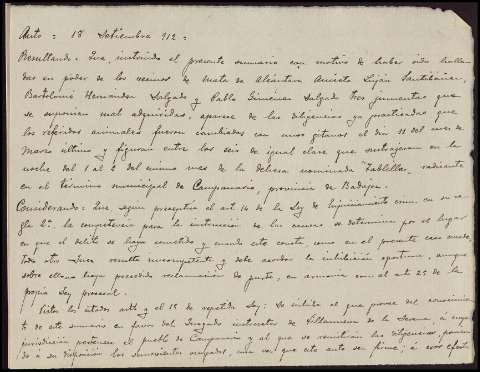 Auto = 18 Setiembre 912 =
Resultando: Que, instruido el presente sumario con motivo de haber sido halla-
das en poder de los vecinos de Mata de Alcántara Aniceto Luján Santibáñez,
Bartolomé Hernández Salgado y Pablo Giménez Salgado tres jumentas que
se suponían mal adquiridas, aparece de las diligencias ya practicadas que
los referidos animales fueron cambiados con unos gitanos el día 11 del mes de
Marzo último y figuran entre los seis de igual clase que sustrajeron en la
noche del 1 al 2 del mismo mes de la dehesa nominada "Tablilla", radicante
en el término municipal de Campanario, provincia de Badajoz.
Considerando: Que según preceptúa el art. 14 de la Ley de Enjuiciamiento crim. en su re-
gla 2ª. la competencia para la instrucción de las causas se determina por el lugar
en que el delito se haya cometido y cuando este consta, como en el presente caso sucede,
todo otro Juez resulta incompetente y debe acordar la inhibición oportuna, aunque
sobre ello no haya precedido reclamación de parte, en armonía con el art 25 de la
propia Ley procesal.
Vistos los citados artº y el 1º de repetida Ley; Se inhibe el que provee del conocimien-
to de este sumario en favor del Juzgado instructor de Villanueva de la Serena á cuya
jurisdicción pertenece el pueblo de Campanario y al que se remitirán las diligencias ponien-
do á su disposición los semovientes ocupados, una vez que este auto sea firme; á cuyo efecto